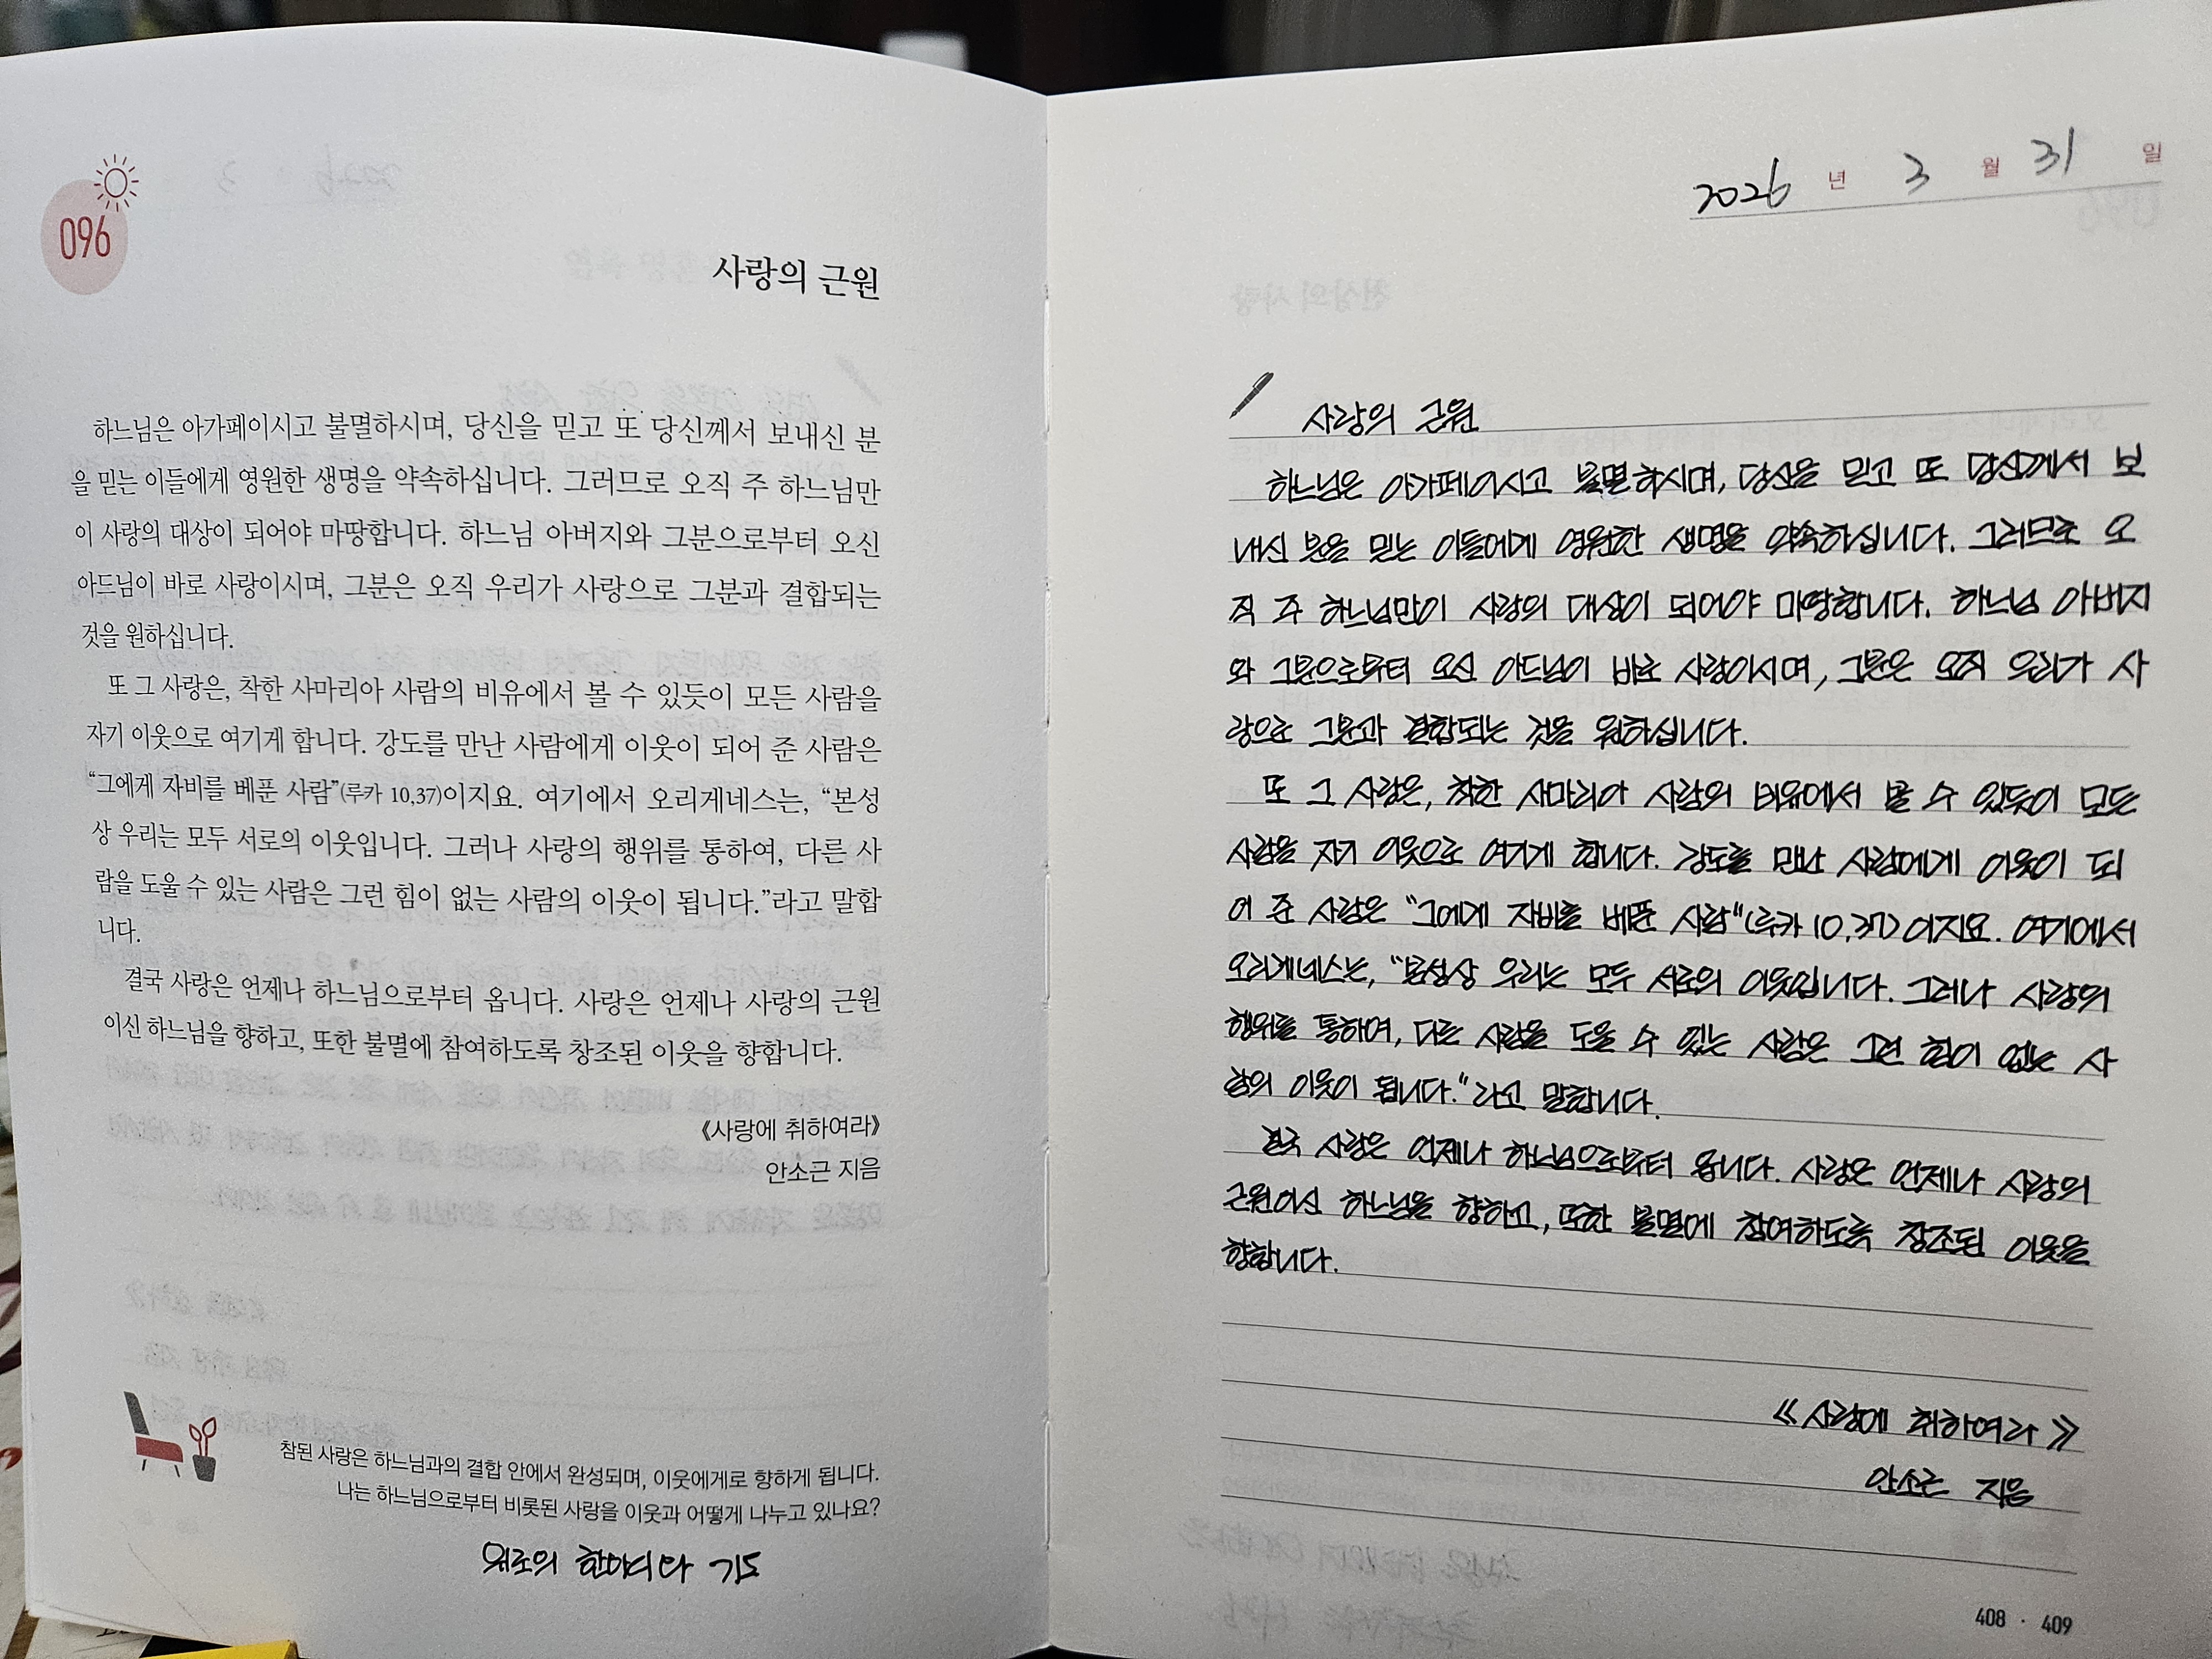 096
사랑의 근원
하느님은 아가페이시고 불멸하시며, 당신을 믿고 또 당신께서 보내신 분
을 믿는 이들에게 영원한 생명을 약속하십니다. 그러므로 오직 주 하느님만
이 사랑의 대상이 되어야 마땅합니다. 하느님 아버지와 그분으로부터 오신
아드님이 바로 사랑이시며, 그분은 오직 우리가 사랑으로 그분과 결합되는
것을 원하십니다.
또 그 사랑은, 착한 사마리아 사람의 비유에서 볼 수 있듯이 모든 사람을
자기 이웃으로 여기게 합니다. 강도를 만난 사람에게 이웃이 되어 준 사람은
“그에게 자비를 베푼 사람”(루카 10,37)이지요. 여기에서 오리게네스는, “본성
상 우리는 모두 서로의 이웃입니다. 그러나 사랑의 행위를 통하여, 다른 사
람을 도울 수 있는 사람은 그런 힘이 없는 사람의 이웃이 됩니다.”라고 말합
니다.
결국 사랑은 언제나 하느님으로부터 옵니다. 사랑은 언제나 사랑의 근원
이신 하느님을 향하고, 또한 불멸에 참여하도록 창조된 이웃을 향합니다.
《사랑에 취하여라》
안소근 지음
참된 사랑은 하느님과의 결합 안에서 완성되며, 이웃에게로 향하게 됩니다.
나는 하느님으로부터 비롯된 사랑을 이웃과 어떻게 나누고 있나요?
위로의 한마디와 기도
2026 년 3 월 31 일
사랑의 근원
하느님은 아가페이시고 불멸하시며, 당신을 믿고 또 당신께서 보
내신 분을 믿는 이들에게 영원한 생명을 약속하십니다. 그러므로 오
직 주 하느님만이 사랑의 대상이 되어야 마땅합니다. 하느님 아버지
와 그분으로부터 오신 아드님이 바로 사랑이시며, 그분은 오직 우리가 사
랑으로 그분과 결합되는 것을 원하십니다.
또 그 사랑은, 착한 사마리아 사람의 비유에서 볼 수 있듯이 모든
사람을 자기 이웃으로 여기게 합니다. 강도를 만난 사람에게 이웃이 되
어 준 사람은 “그에게 자비를 베푼 사람"(루카 10,37)이지요. 여기에서
오리게네스는, “본성상 우리는 모두 서로의 이웃입니다. 그러나 사랑의
행위를 통하여, 다른 사람을 도울 수 있는 사람은 그런 힘이 없는 사
람의 이웃이 됩니다."라고 말합니다.
결국 사랑은 언제나 하느님으로부터 옵니다. 사랑은 언제나 사랑의
근원이신 하느님을 향하고, 또한 불멸에 참여하도록 창조된 이웃을
향합니다.
《사랑에 취하여라》
안소근 지음
408 · 409